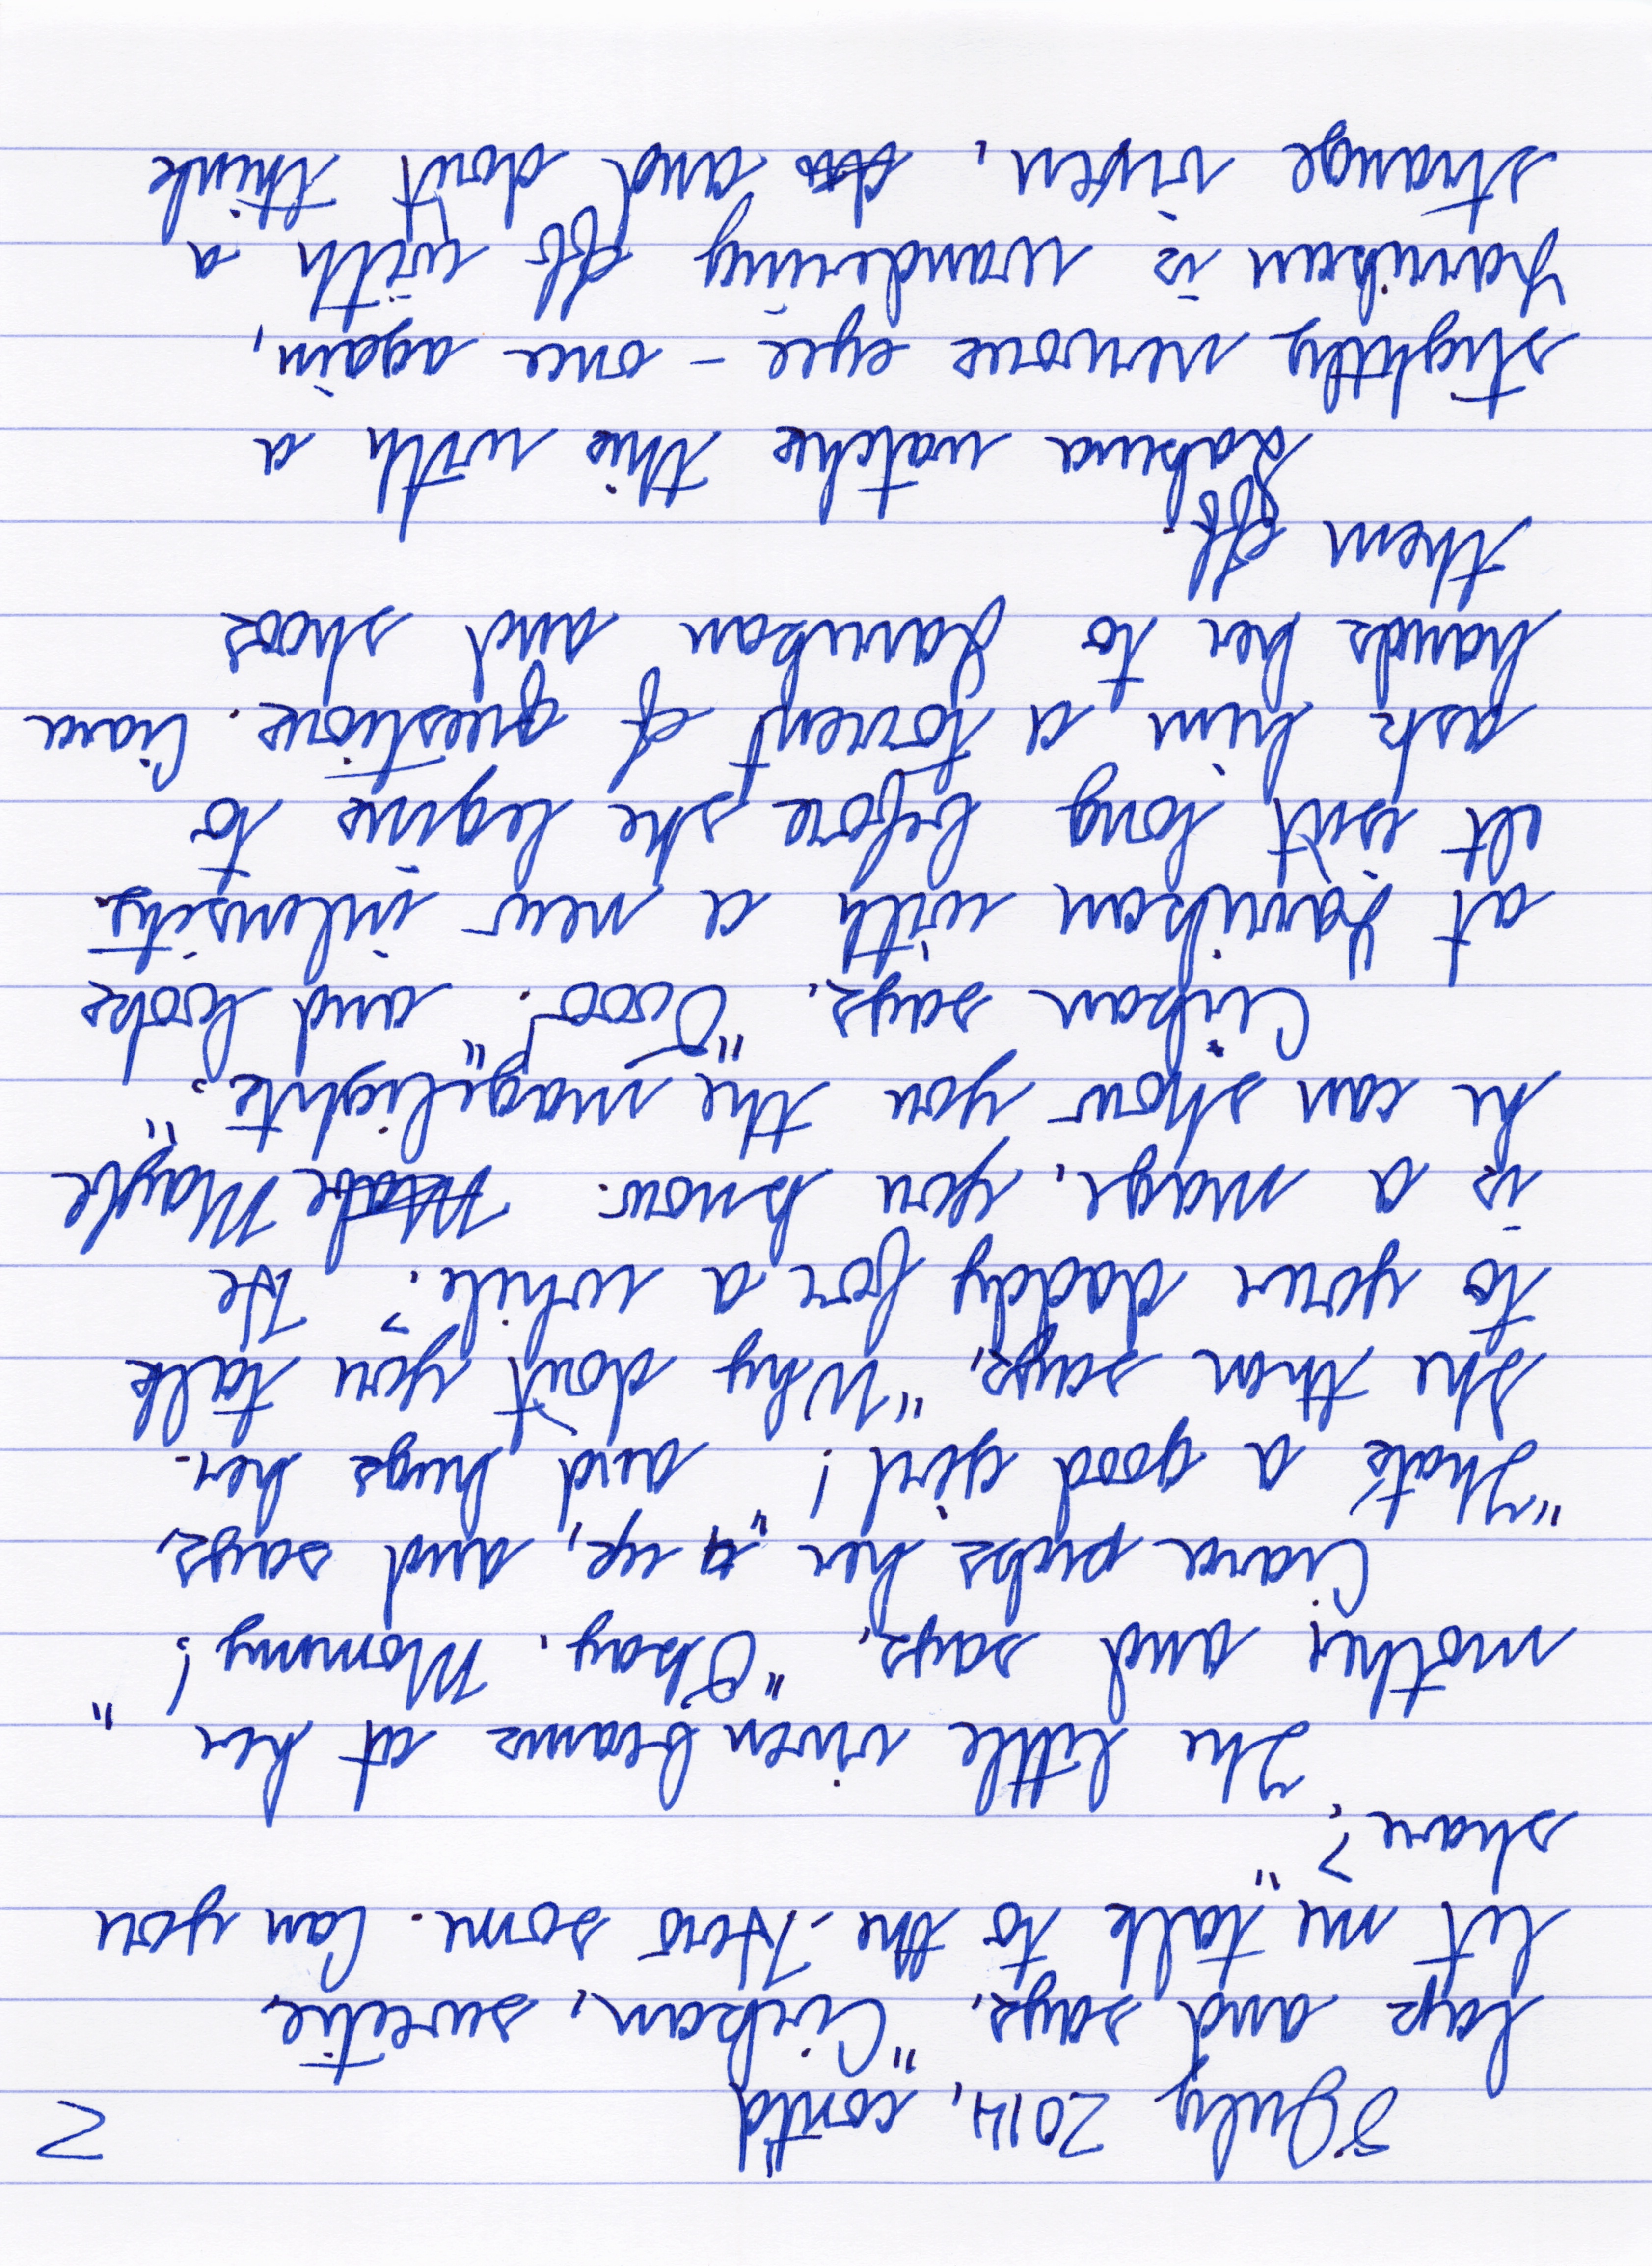 8 July 2014, cont'd 2
lap and says, "Cirkan, sweetie,
let me talk to the Hero some. Can you
share?"
The little vixen beams at her
mother and says, "Okay, Mommy!"
Ciara picks her up, and says,
"That's a good girl!" and hugs her.
She then says, "Why don't you talk
to your daddy for a while? He
is a mage, you know. Mabe Maybe
he can show you the magelights."
Cirkan says, "Oooo!" and looks
at Yarrikan with a new intensity.
It isn't long before she begins to
ask him a torrent of questions. Ciara
hands her to Yarrikan and shoos
them off.
watches this with a
slightly nervous eye – once again,
Yarrikan is wandering off with a
strange vixen, do and don't think